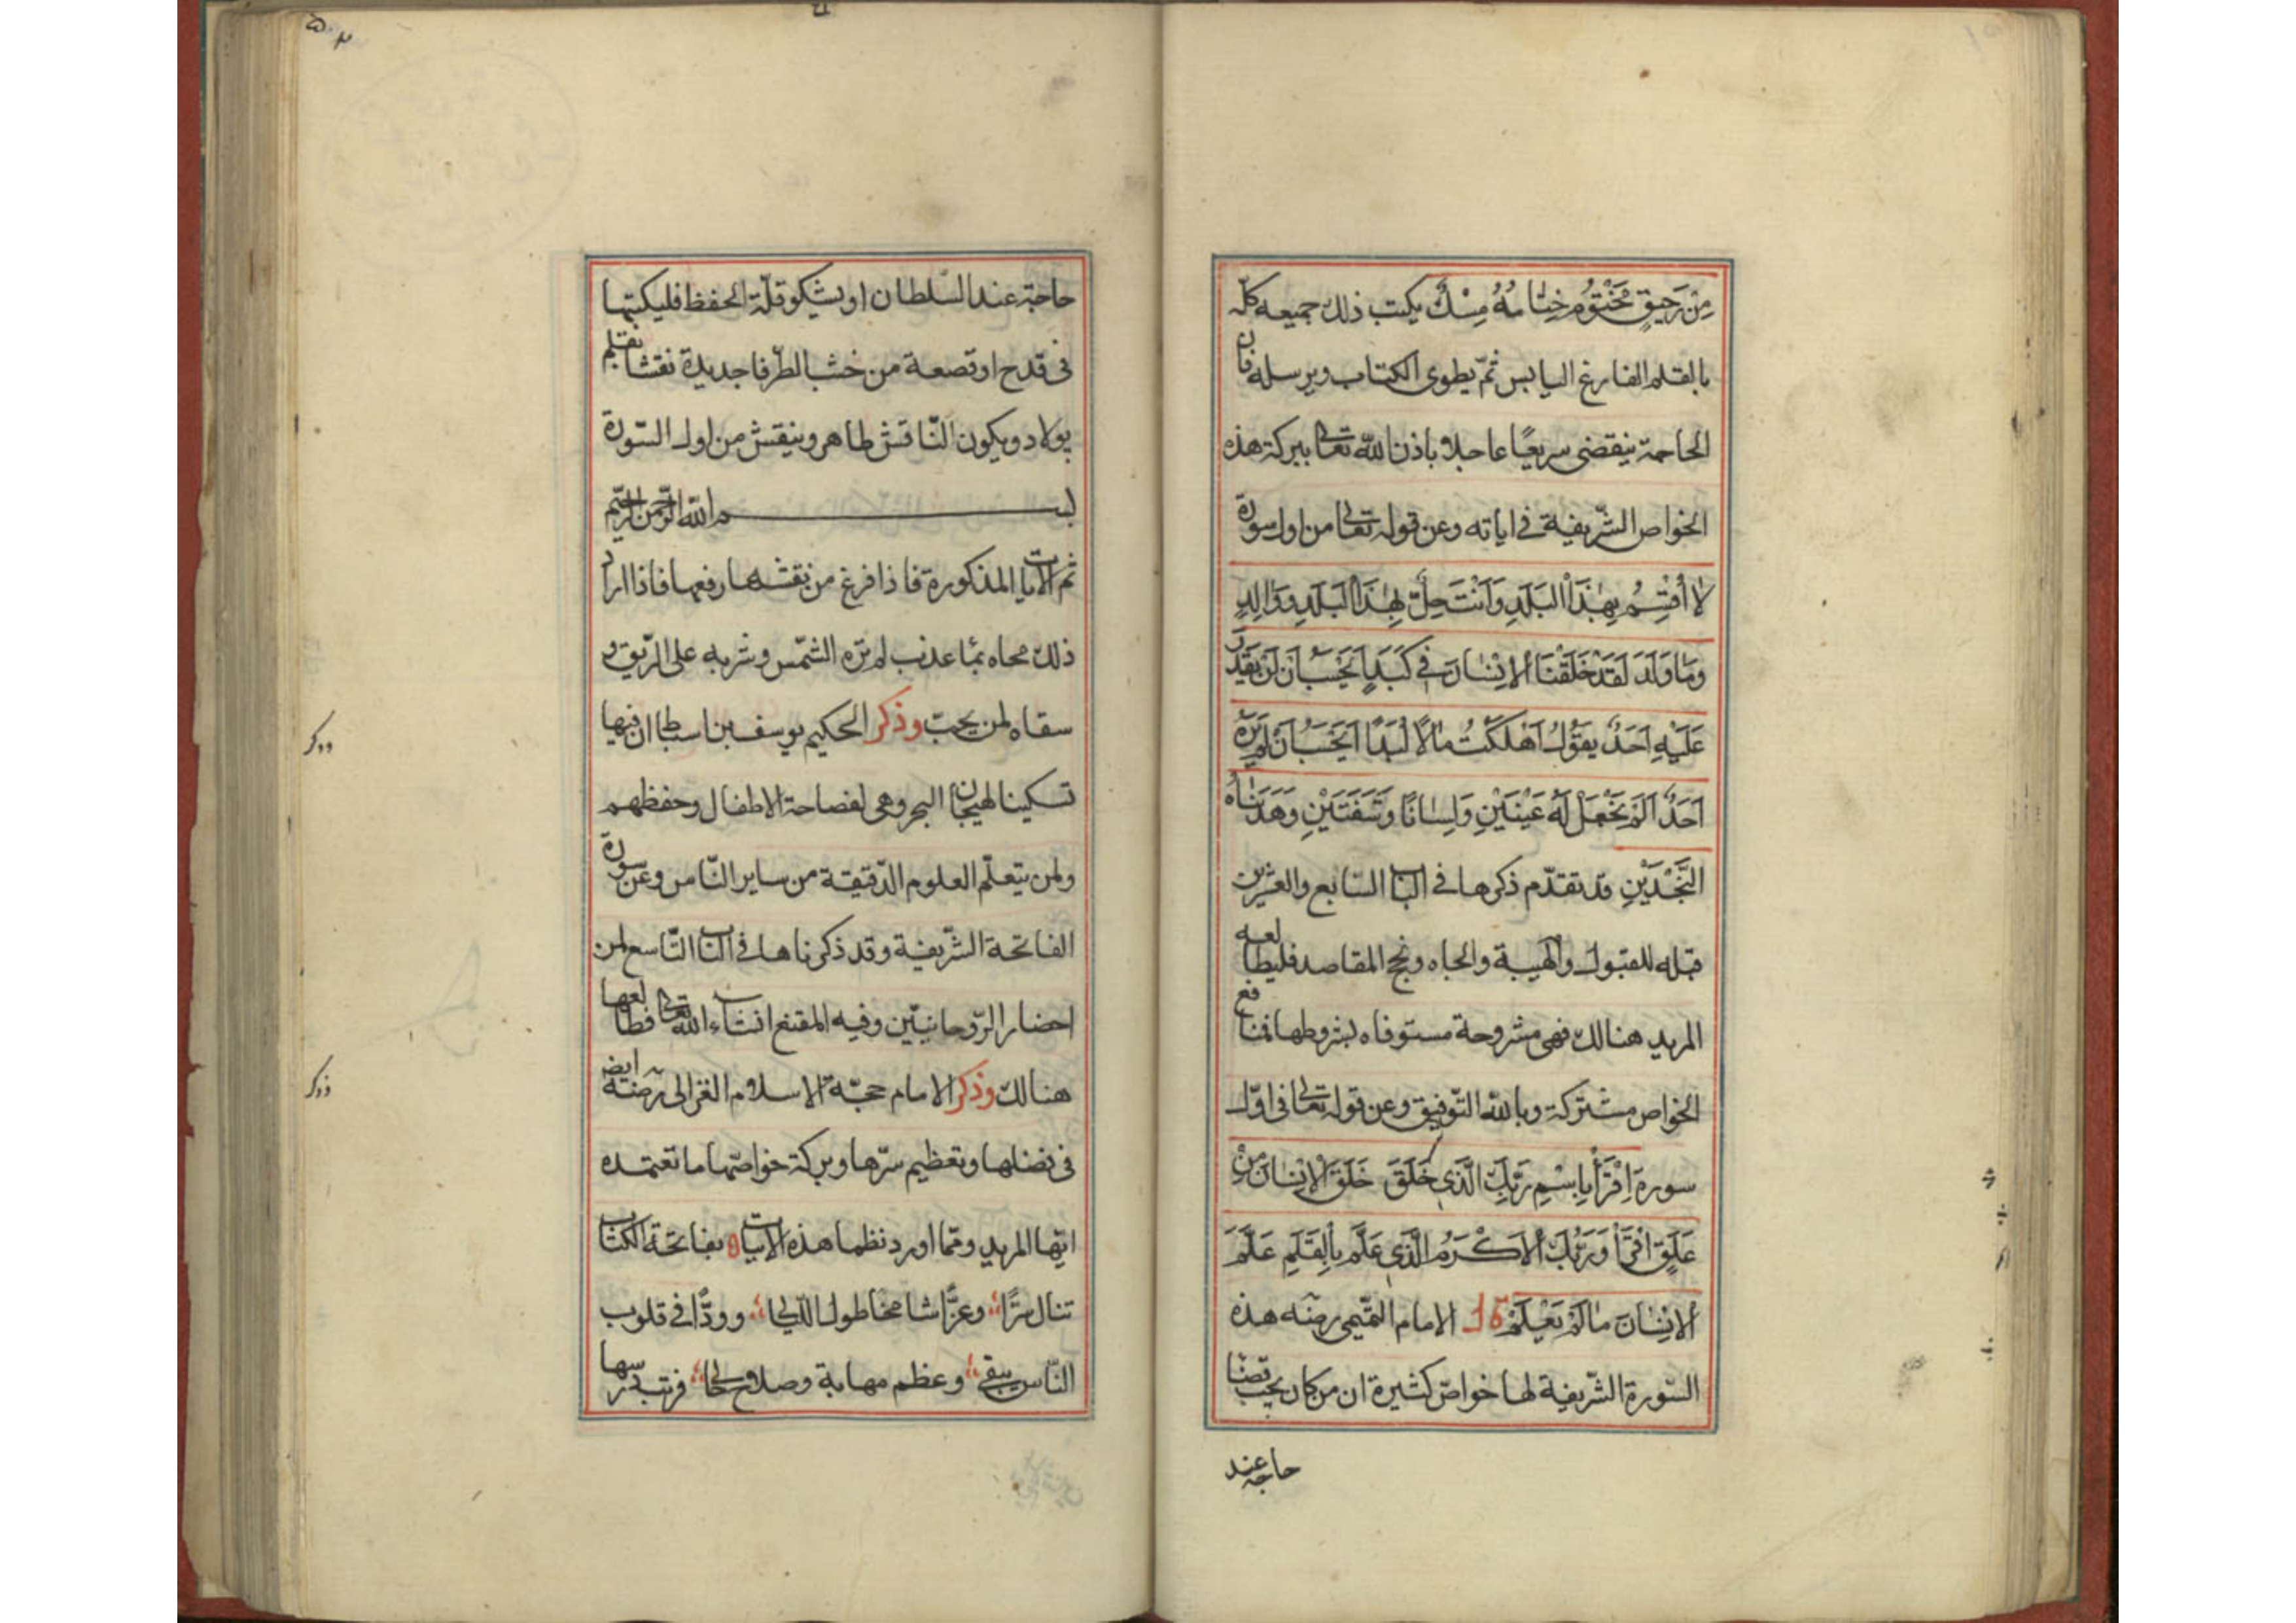 مِنْ رَحِيقٍ مَخْتُومٍ خِتَامُهُ مِسْكٌ يكتب ذلك جميعه كلّه
بالقلم الفارغ اليابس ثمّ يطوى الكتاب ويرسله فان
الحاجة ينقضى سريعًا عاجلا باذن الله تعالى ببركة هذه
الخواص الشّريفة فى اياته وعن قوله تعالى من اول سورة
لَا أُقْسِمُ بِهٰذَا الْبَلَدِ وَاَنْتَ حِلٌّ بِهٰذَا الْبَلَدِ وَوَالِدٍ
وَمَا وَلَدَ لَقَدْ خَلَقْنَا الْاِنْسَانَ فِى كَبَدٍ اَيَحْسَبُ اَنْ لَنْ يَقْدِرَ
عَلَيْهِ اَحَدٌ يَقُولُ اَهْلَكْتُ مَالًا لُبَدًا اَيَحْسَبُ اَنْ لَمْ يَرَهُ
اَحَدٌ اَلَمْ نَجْعَلْ لَهُ عَيْنَيْنِ وَلِسَانًا وَشَفَتَيْنِ وَهَدَيْنَاهُ
النَّجْدَيْنِ قد تقدّم ذكرها فى الباب السّابع والعشرين
قبله للقبول والهيبة والجاه ونجح المقاصد فليطالعه
المريد هنالك فهى مشروحة مستوفاه بشروطها فمنافع
الخواص مشتركة وبالله التّوفيق وعن قوله تعالى فى اوّل
سورة اِقْرَأْ بِاسْمِ رَبِّكَ الَّذِى خَلَقَ خَلَقَ الْاِنْسَانَ مِنْ
عَلَقٍ اقْرَأْ وَرَبُّكَ الْاَكْرَمُ الَّذِى عَلَّمَ بِالْقَلَمِ عَلَّمَ
الْاِنْسَانَ مَا لَمْ يَعْلَمْ قال الامام التّميمى رضه هذه
السّورة الشّريفة لها خواصّ كثيرة ان من كان يحبّ قضا
حاجة عند
حاجة عند السّلطان او يشكو قلّة الحفظ فليكتبها
فى قدح او قصعة من خشب الطّرفا جديدة نقشا بقلم
بولاد ويكون النّاقش طاهر وينقش من اول السّورة
بسم الله الرّحمن الرّحيم
ثم الايات المذكورة فاذا فرغ من نقشها رفعها فاذا اراد
ذلك محاه بمّا عذب لم تره الشّمس وشربه على الرّيق و
سقاه لمن يحبّ وذكر الحكيم يوسف بن اسباط ان فيها
تسكينا لهيجان البحر وهى لفصاحة الاطفال وحفظهم
ولمن يتعلّم العلوم الدّقيقة من ساير النّاس وعن سورة
الفاتحة الشّريفة وقد ذكرناها فى الباب التّاسع لمن
احضار الرّوحانيّين وفيه المقنع انشاء الله تعالى فطالعها
هنالك وذكر الامام حجّة الاسلام الغزالى رضه ايضا
فى فضلها وتعظيم سرّها وبركة خواصّها ما تعتمده
ايّها المريد وممّا اورد نظما هذه الابيات بفاتحة الكتاب
تنال سرًّا وعزًّا شامخا طول اللّيالى وودًّا فى قلوب
النّاس يبقى وعظم مهابة وصلاح حال فرتب درسها
وذكر
وذكر